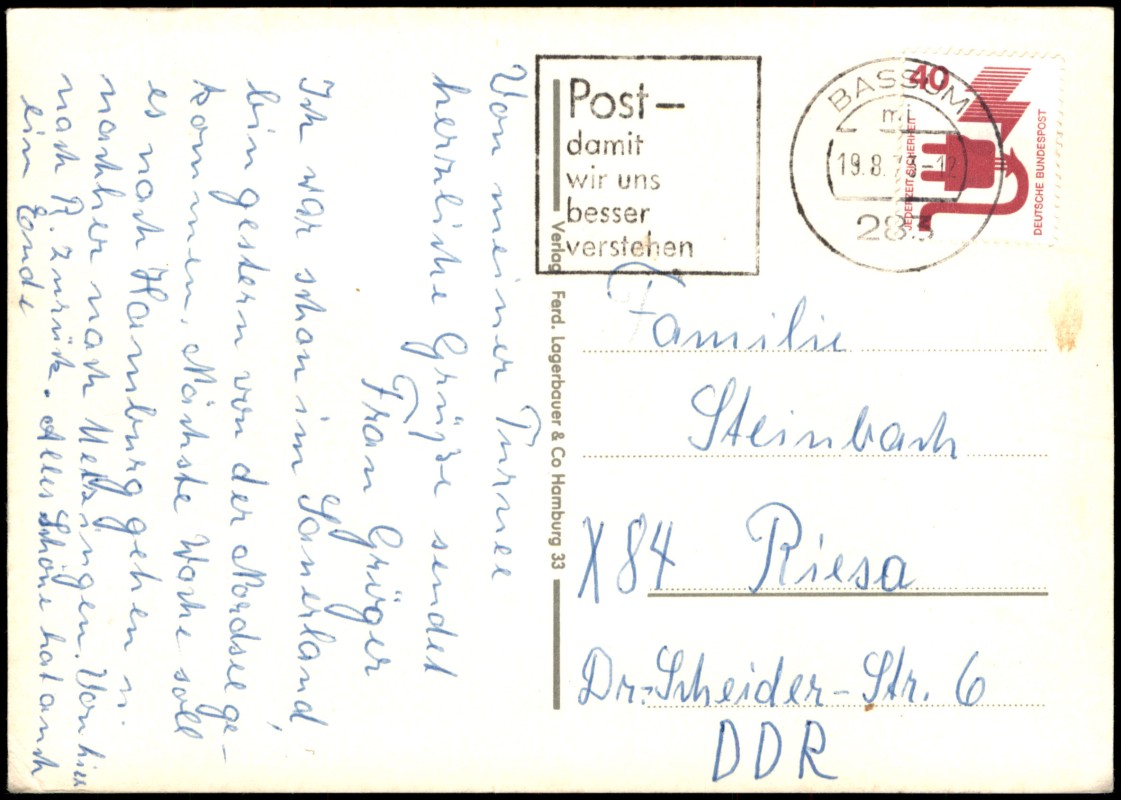 Von meiner Turnee
herzliche Grüße sendet
Frau Grüger
Ich war schon im Sauerland,
bin gestern von der Nordsee ge-
kommen. Nächste Woche soll
es nach Hamburg gehen u.
nachher nach Metzingen. Von hier
nach R. zurück. Alles Schöne hat auch
ein Ende
Verlag Ferd. Lagerbauer & Co Hamburg 33
Post–
damit
wir uns
besser
verstehen
BASSUM
mi
283
40
JEDERZEIT SICHERHEIT
DEUTSCHE BUNDESPOST
Familie
Steinbach
X84 Riesa
Dr.-Scheider-Str. 6
DDR